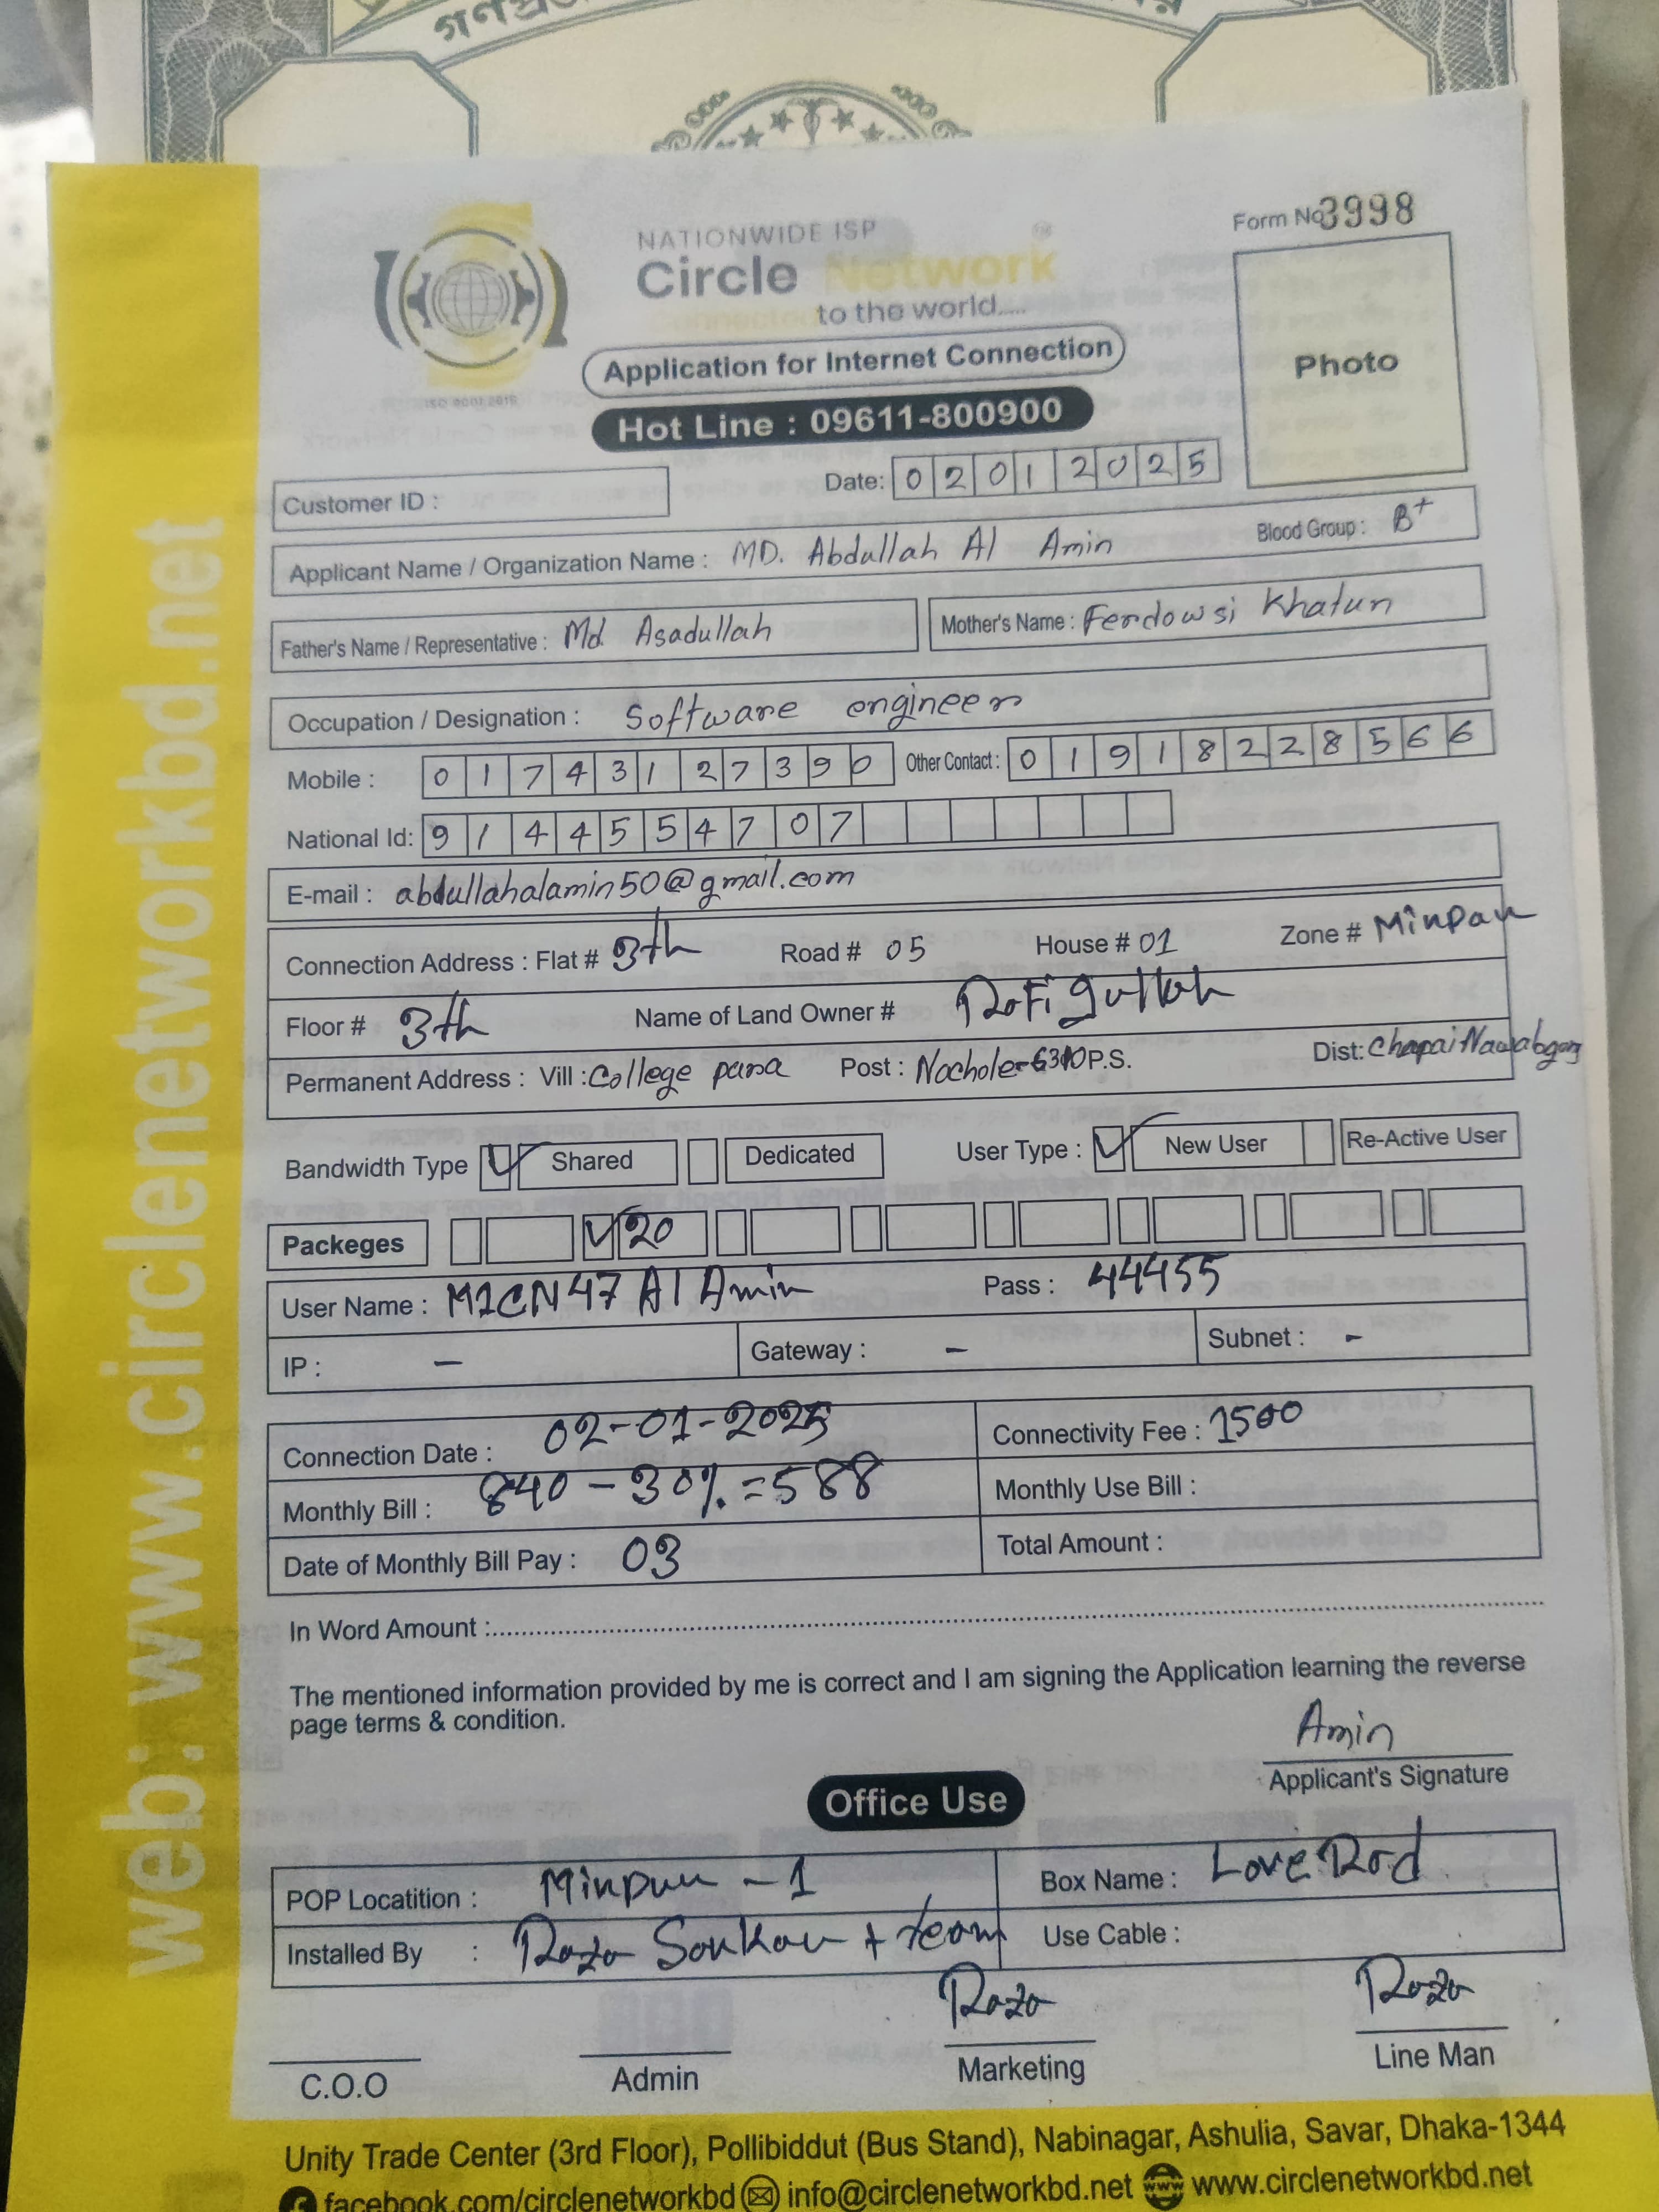 NATIONWIDE ISP
Circle Network
to the world....
Form No 3998
Photo
ISO 9001:2015
Application for Internet Connection
Hot Line : 09611-800900
Customer ID :
Date: 02012025
Applicant Name / Organization Name : MD. Abdullah Al Amin Blood Group : B+
Father's Name / Representative : Md. Asadullah Mother's Name : Ferdowsi Khatun
Occupation / Designation : Software engineer
Mobile : 01743127390 Other Contact : 01918228566
National Id: 9144554707
E-mail : abdullahalamin50@gmail.com
Connection Address : Flat # 3th Road # 05 House # 01 Zone # Mirpur
Floor # 3th Name of Land Owner # Rofiqullah
Permanent Address : Vill : College para Post : Nachole-6310 P.S. Dist: ChapaiNawabganj
Bandwidth Type Shared Dedicated User Type : New User Re-Active User
Packeges 20
User Name : M1CN47 Al Amin Pass : 44455
IP : – Gateway : – Subnet : –
Connection Date : 02-01-2025 Connectivity Fee : 1500
Monthly Bill : 840 - 30% = 588 Monthly Use Bill :
Date of Monthly Bill Pay : 03 Total Amount :
In Word Amount :
The mentioned information provided by me is correct and I am signing the Application learning the reverse
page terms & condition.
Amin
Applicant's Signature
Office Use
POP Locatition : Mirpur - 1 Box Name : Love Rod
Installed By : Raza Sarkar + team Use Cable :
Raza Raza
C.O.O Admin Marketing Line Man
Unity Trade Center (3rd Floor), Pollibiddut (Bus Stand), Nabinagar, Ashulia, Savar, Dhaka-1344
facebook.com/circlenetworkbd info@circlenetworkbd.net www.circlenetworkbd.net
web: www.circlenetworkbd.net